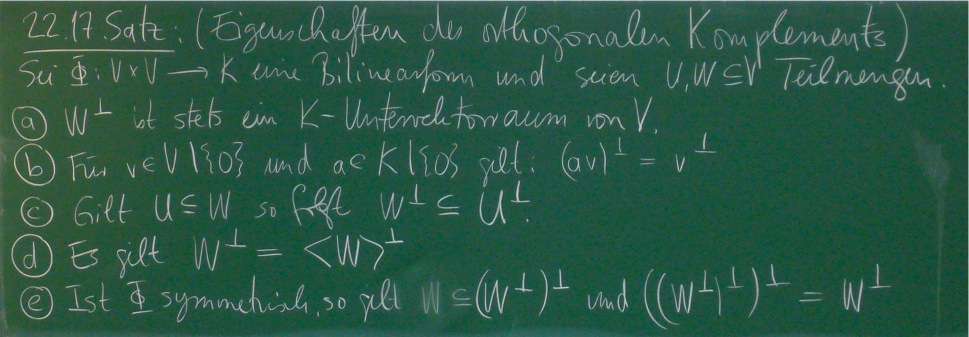 22.17. Satz: (Eigenschaften des orthogonalen Komplements)
Sei Φ: V×V → K eine Bilinearform und seien U,W ⊆ V Teilmengen.
ⓐ W^⊥ ist stets ein K-Untervektorraum von V.
ⓑ Für v∈V\{0} und a∈K\{0} gilt: (av)^⊥ = v^⊥
ⓒ Gilt U ⊆ W so folgt W^⊥ ⊆ U^⊥.
ⓓ Es gilt W^⊥ = <W>^⊥
ⓔ Ist Φ symmetrisch, so gilt W ⊆ (W^⊥)^⊥ und ((W^⊥)^⊥)^⊥ = W^⊥